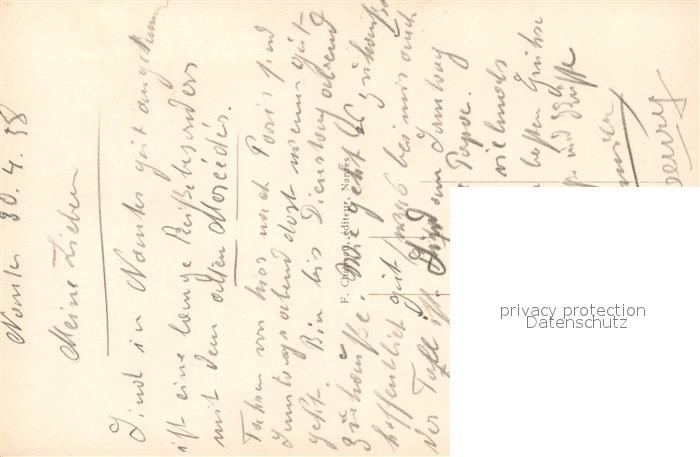 Nantes 30.4.38
Meine Lieben
Sind in Nantes gut angekommen
ist eine lange Reiße besonders
mit dem alten Mercedes.
Fahren von hier nach Paris sind
Samstag abend dort wenns gut
geht. Bin bis Dienstag abend
zuhauße. Wie geht es zuhauße
hoffentlich gut bei mir auch
der Fall ist. Sind am Samstag
Papa.
vielmals
besten Grüße
und Küsse
F. Chapeau, éditeur, Nantes
privacy protection
Datenschutz